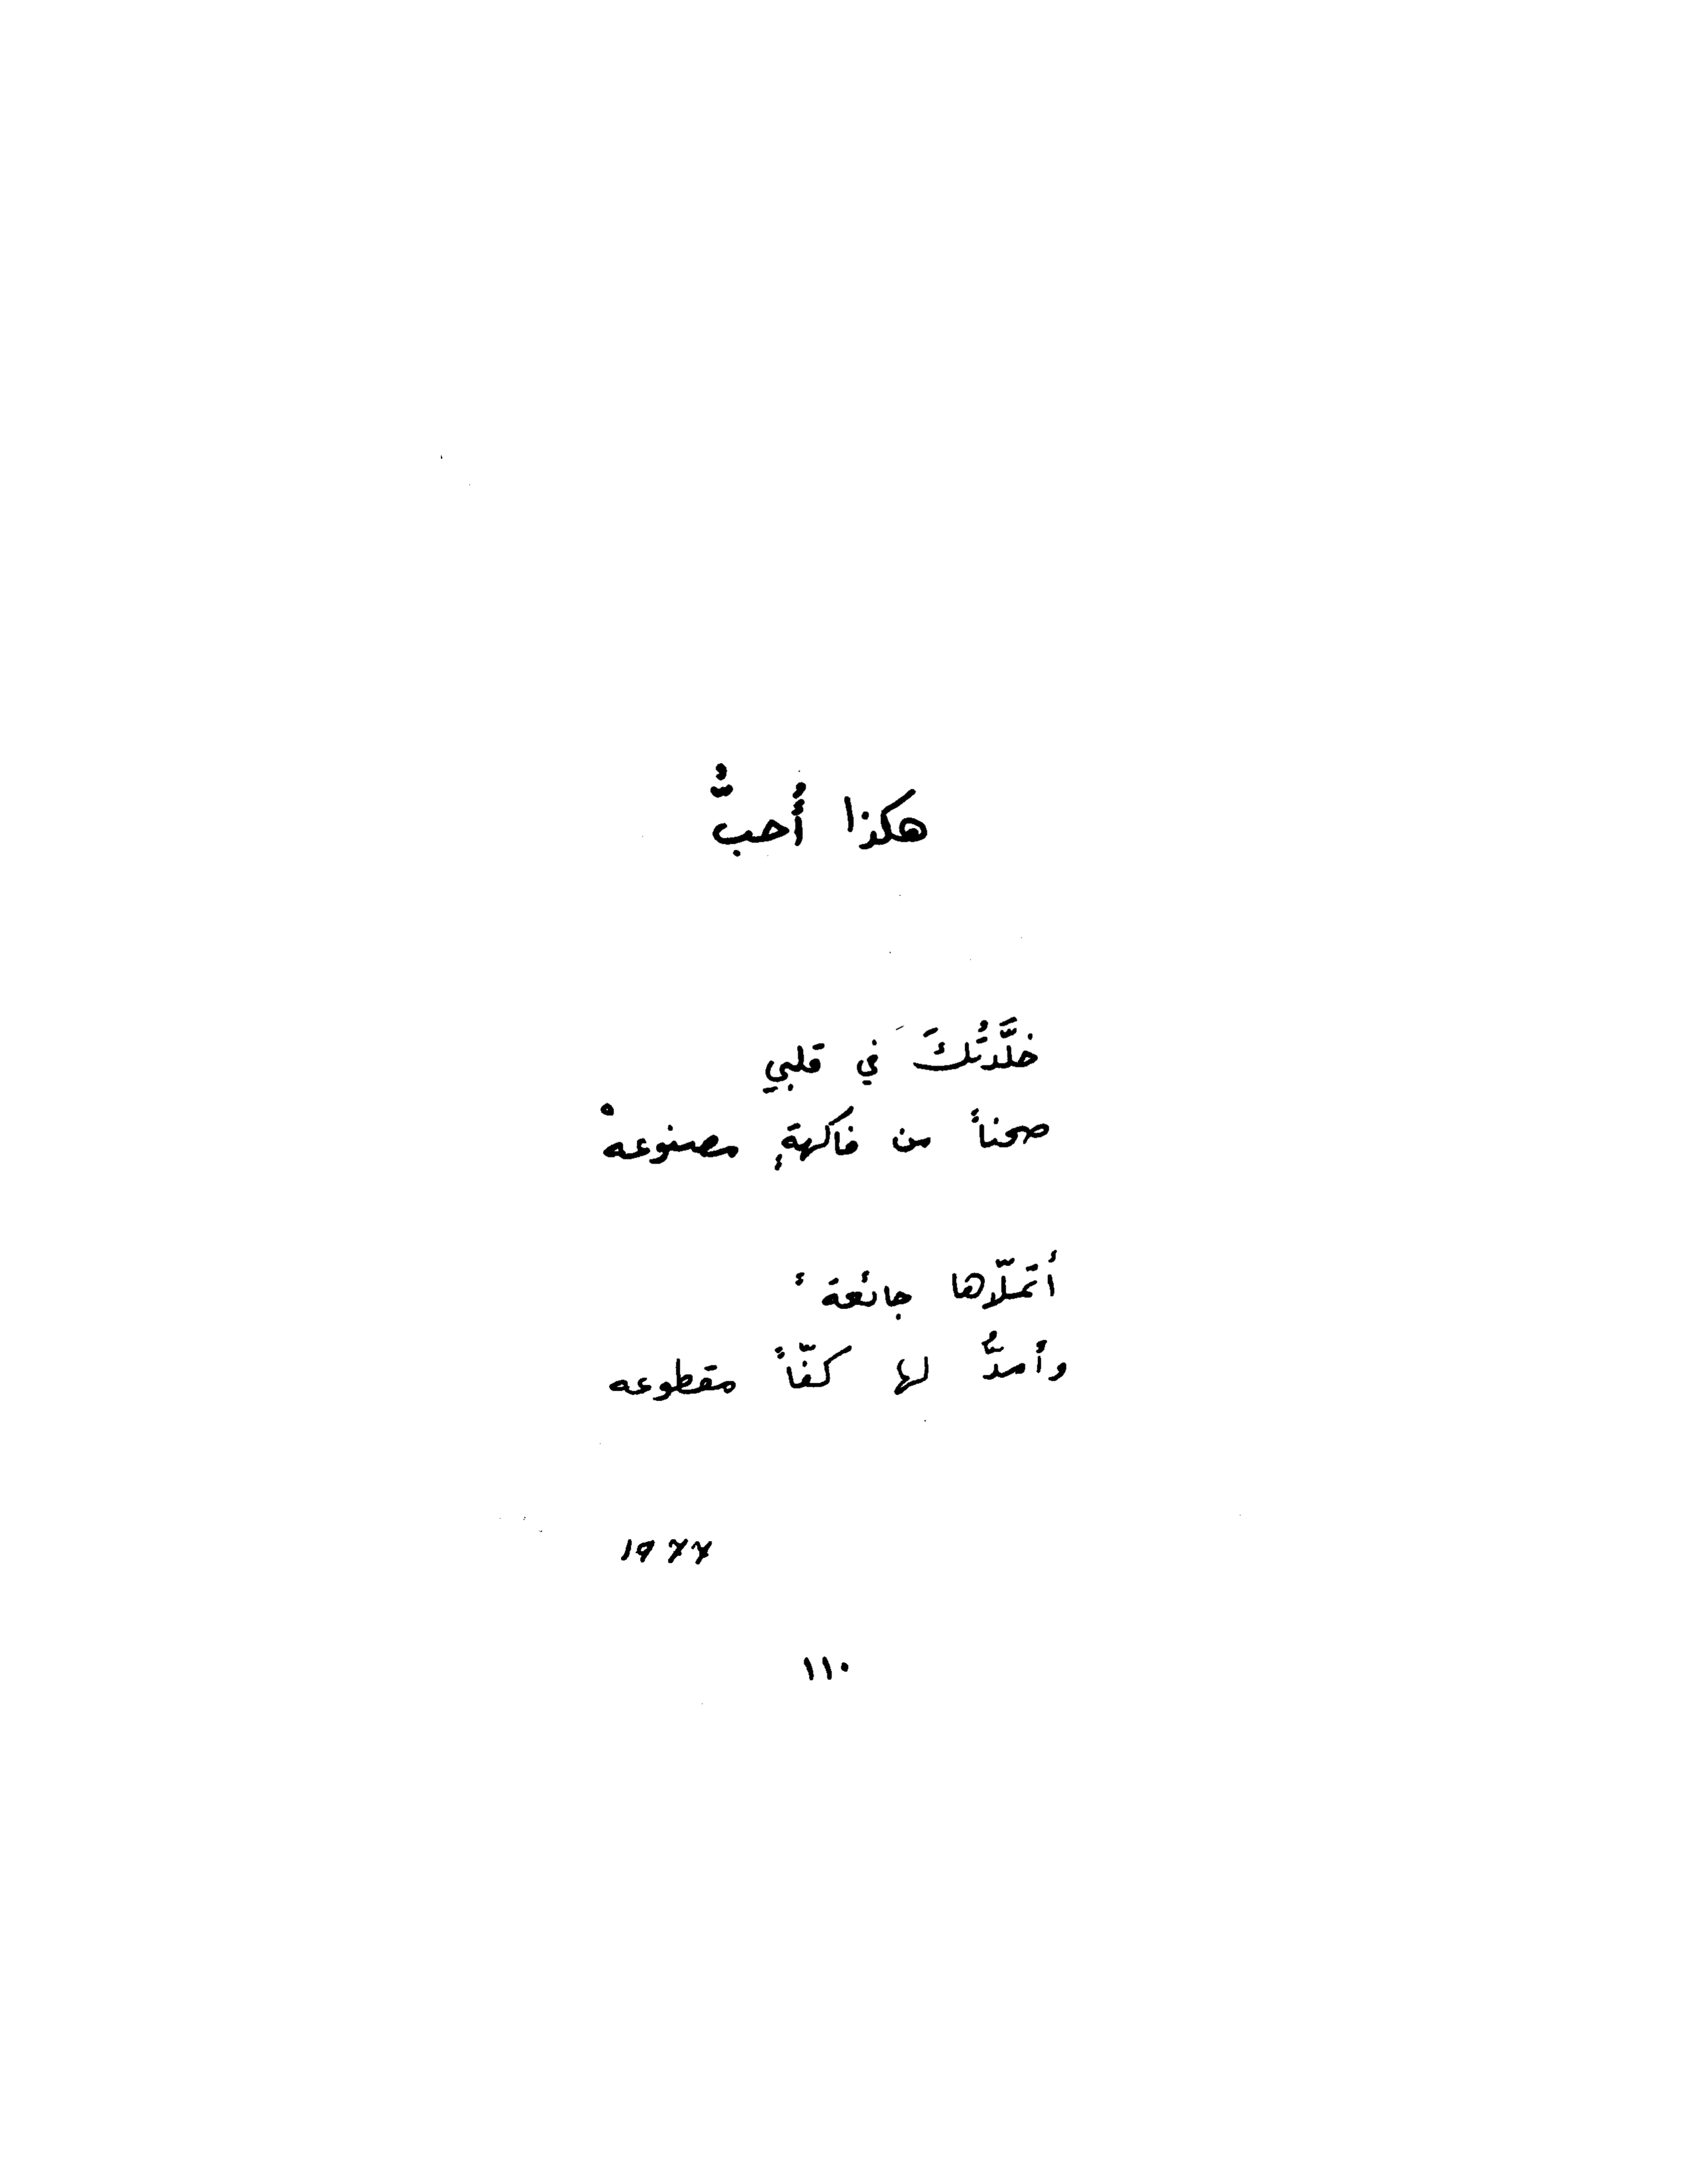 هكذا أُحبُّ
خلَّدتُكَ في قلبي
صحناً من فاكهةٍ مصنوعهْ
أتملّاها جائعةً
وأمدُّ لها كفّاً مقطوعه
1977
١١٠